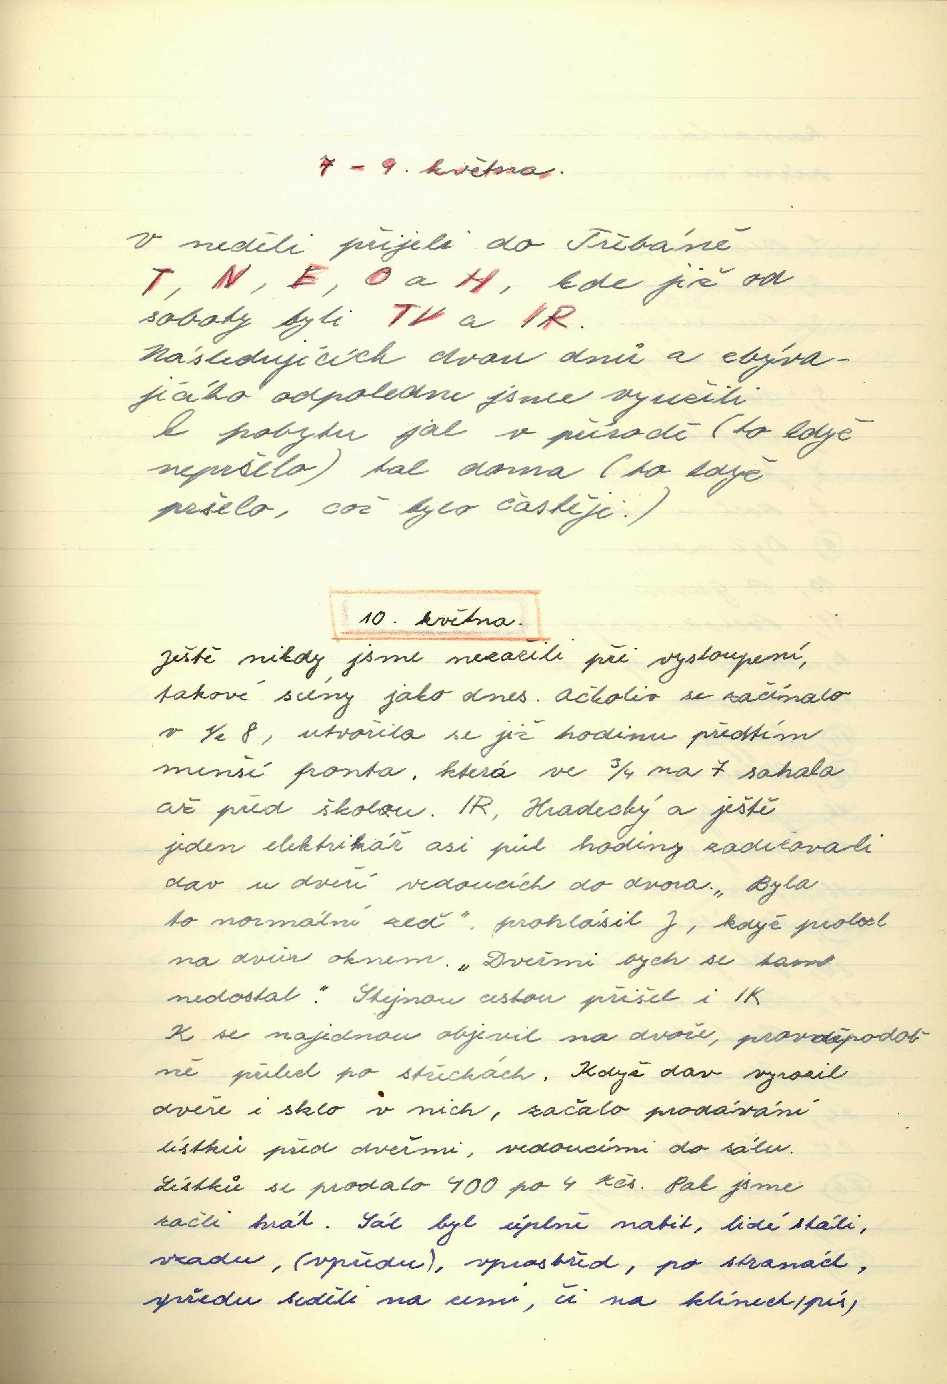 7 - 9. května.
V neděli přijeli do Třibáně
T, N, E, O a H, kde již od
soboty byli TV a IR.
Následujících dvou dnů a zbýva-
jícího odpoledne jsme využili
k pobytu jak v přírodě (to když
nepršelo) tak doma (to když
pršelo, což bylo častěji.)
10. května.
Ještě nikdy jsme nezažili při vystoupení,
takové scény jako dnes. Ačkoliv se začínalo
v 1/2 8, utvořila se již hodinu předtím
menší fronta, která ve 3/4 na 7 sahala
až před školou. IR, Hradecký a ještě
jeden elektrikář asi půl hodiny zadržovali
dav u dveří vedoucích do dvora. „Byla
to normální zeď“. prohlásil J, když prolezl
na dvůr oknem. „Dveřmi bych se tam
nedostal.“ Stejnou cestou přišel i IK
K se najednou objevil na dvoře, pravděpodob
ně přilez po střechách. Když dav vyrazil
dveře i sklo v nich, začalo prodávání
lístků před dveřmi, vedoucími do sálu.
Lístků se prodalo 400 po 4 Kčs. Pak jsme
začli hrát. Sál byl úplně nabit, lidé stáli,
vzadu, (vpředu), uprostřed, po stranách,
vpředu seděli na zemi, či na klínech,